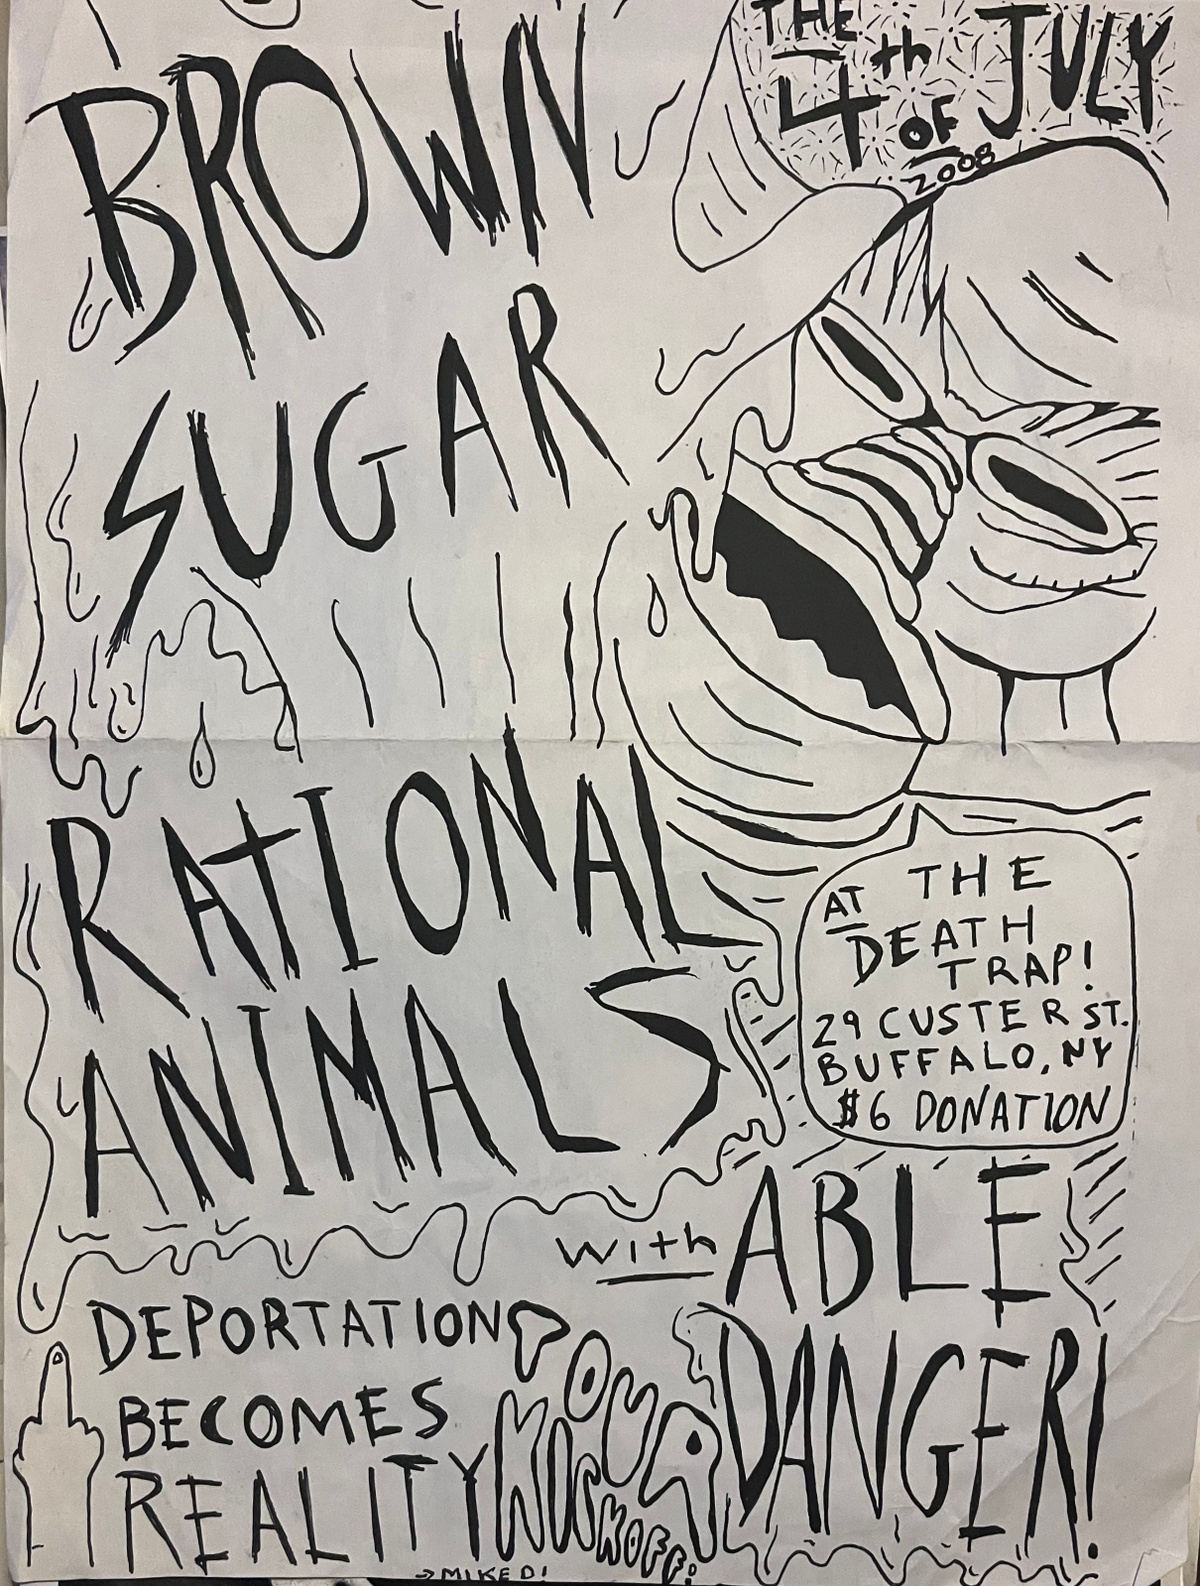 BROWN
SUGAR
THE
4th
OF JULY
2008
RATIONAL
ANIMALS
AT THE
DEATH
TRAP!
29 CUSTER ST.
BUFFALO, NY
$6 DONATION
with ABLE
DANGER!
DEPORTATION
BECOMES
REALITY
TOUR
KICK
KOFF!
→ MIKE D!